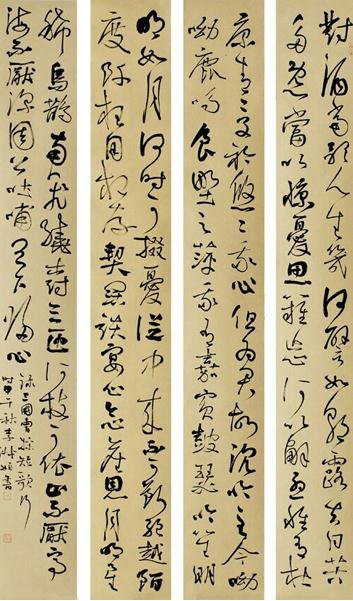 對酒當歌人生幾何譬如朝露去日苦
多慨當以慷憂思難忘何以解憂惟有杜
康青青子衿悠悠我心但為君故沉吟至今呦
呦鹿鳴食野之苹我有嘉賓鼓瑟吹笙明
明如月何時可掇憂從中來不可斷絕越陌
度阡枉用相存契闊談宴心念舊恩月明星
稀烏鵲南飛繞樹三匝何枝可依山不厭高
海不厭深周公吐哺天下歸心
錄三國曹操短歌行
時甲午秋李書